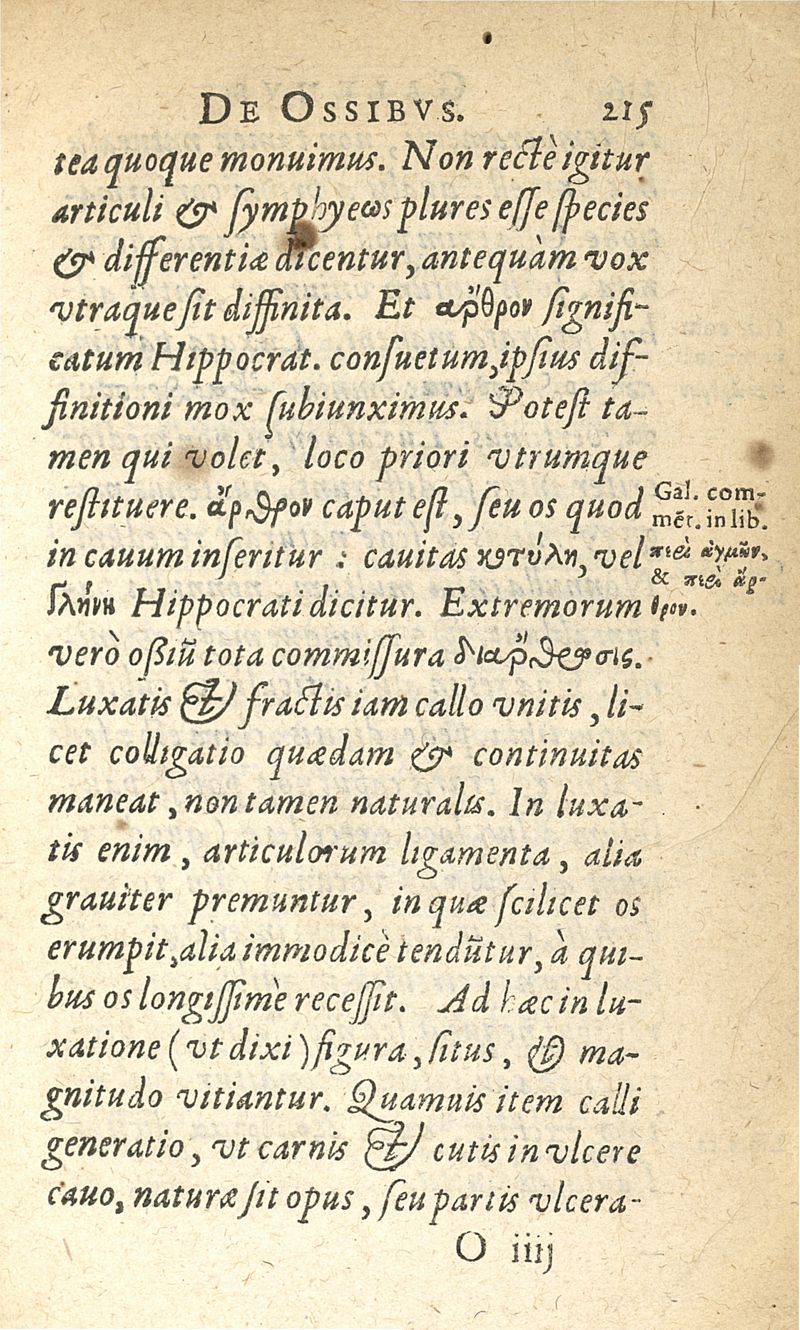 DE OSSIBVS. 215
tea quoque monuimus. Non rectè igitur
articuli & ſymphyeωs plures eſſe ſpecies
& differentiæ dicentur, antequàm vox
vtraque ſit diffinita. Et ἄρθρον ſignifi-
catum Hippocrat. conſuetum, ipſius dif-
finitioni mox ſubiunximus. Poteſt ta-
men qui volet, loco priori vtrumque
reſtituere. ἄρθρον caput eſt, ſeu os quod
in cauum inſeritur : cauitas κοτύλη, vel
γλήνη Hippocrati dicitur. Extremorum
verò oßiū tota commiſſura διάρθρωσις.
Luxatis & fractis iam callo vnitis, li-
cet colligatio quædam & continuitas
maneat, non tamen naturalis. In luxa-
tis enim, articulorum ligamenta, alia
grauiter premuntur, in quæ ſcilicet os
erumpit, alia immodicè tendūtur, à qui-
bus os longiſſimè receſſit. Ad hæc in lu-
xatione (vt dixi) figura, ſitus, & ma-
gnitudo vitiantur. Quamuis item calli
generatio, vt carnis & cutis in vlcere
cauo, naturæ ſit opus, ſeu partis vlcera-
O iiij
Gal. com-
mēt. in lib.
περὶ ἀγμῶν,
& περὶ ἄρ-
θρον.